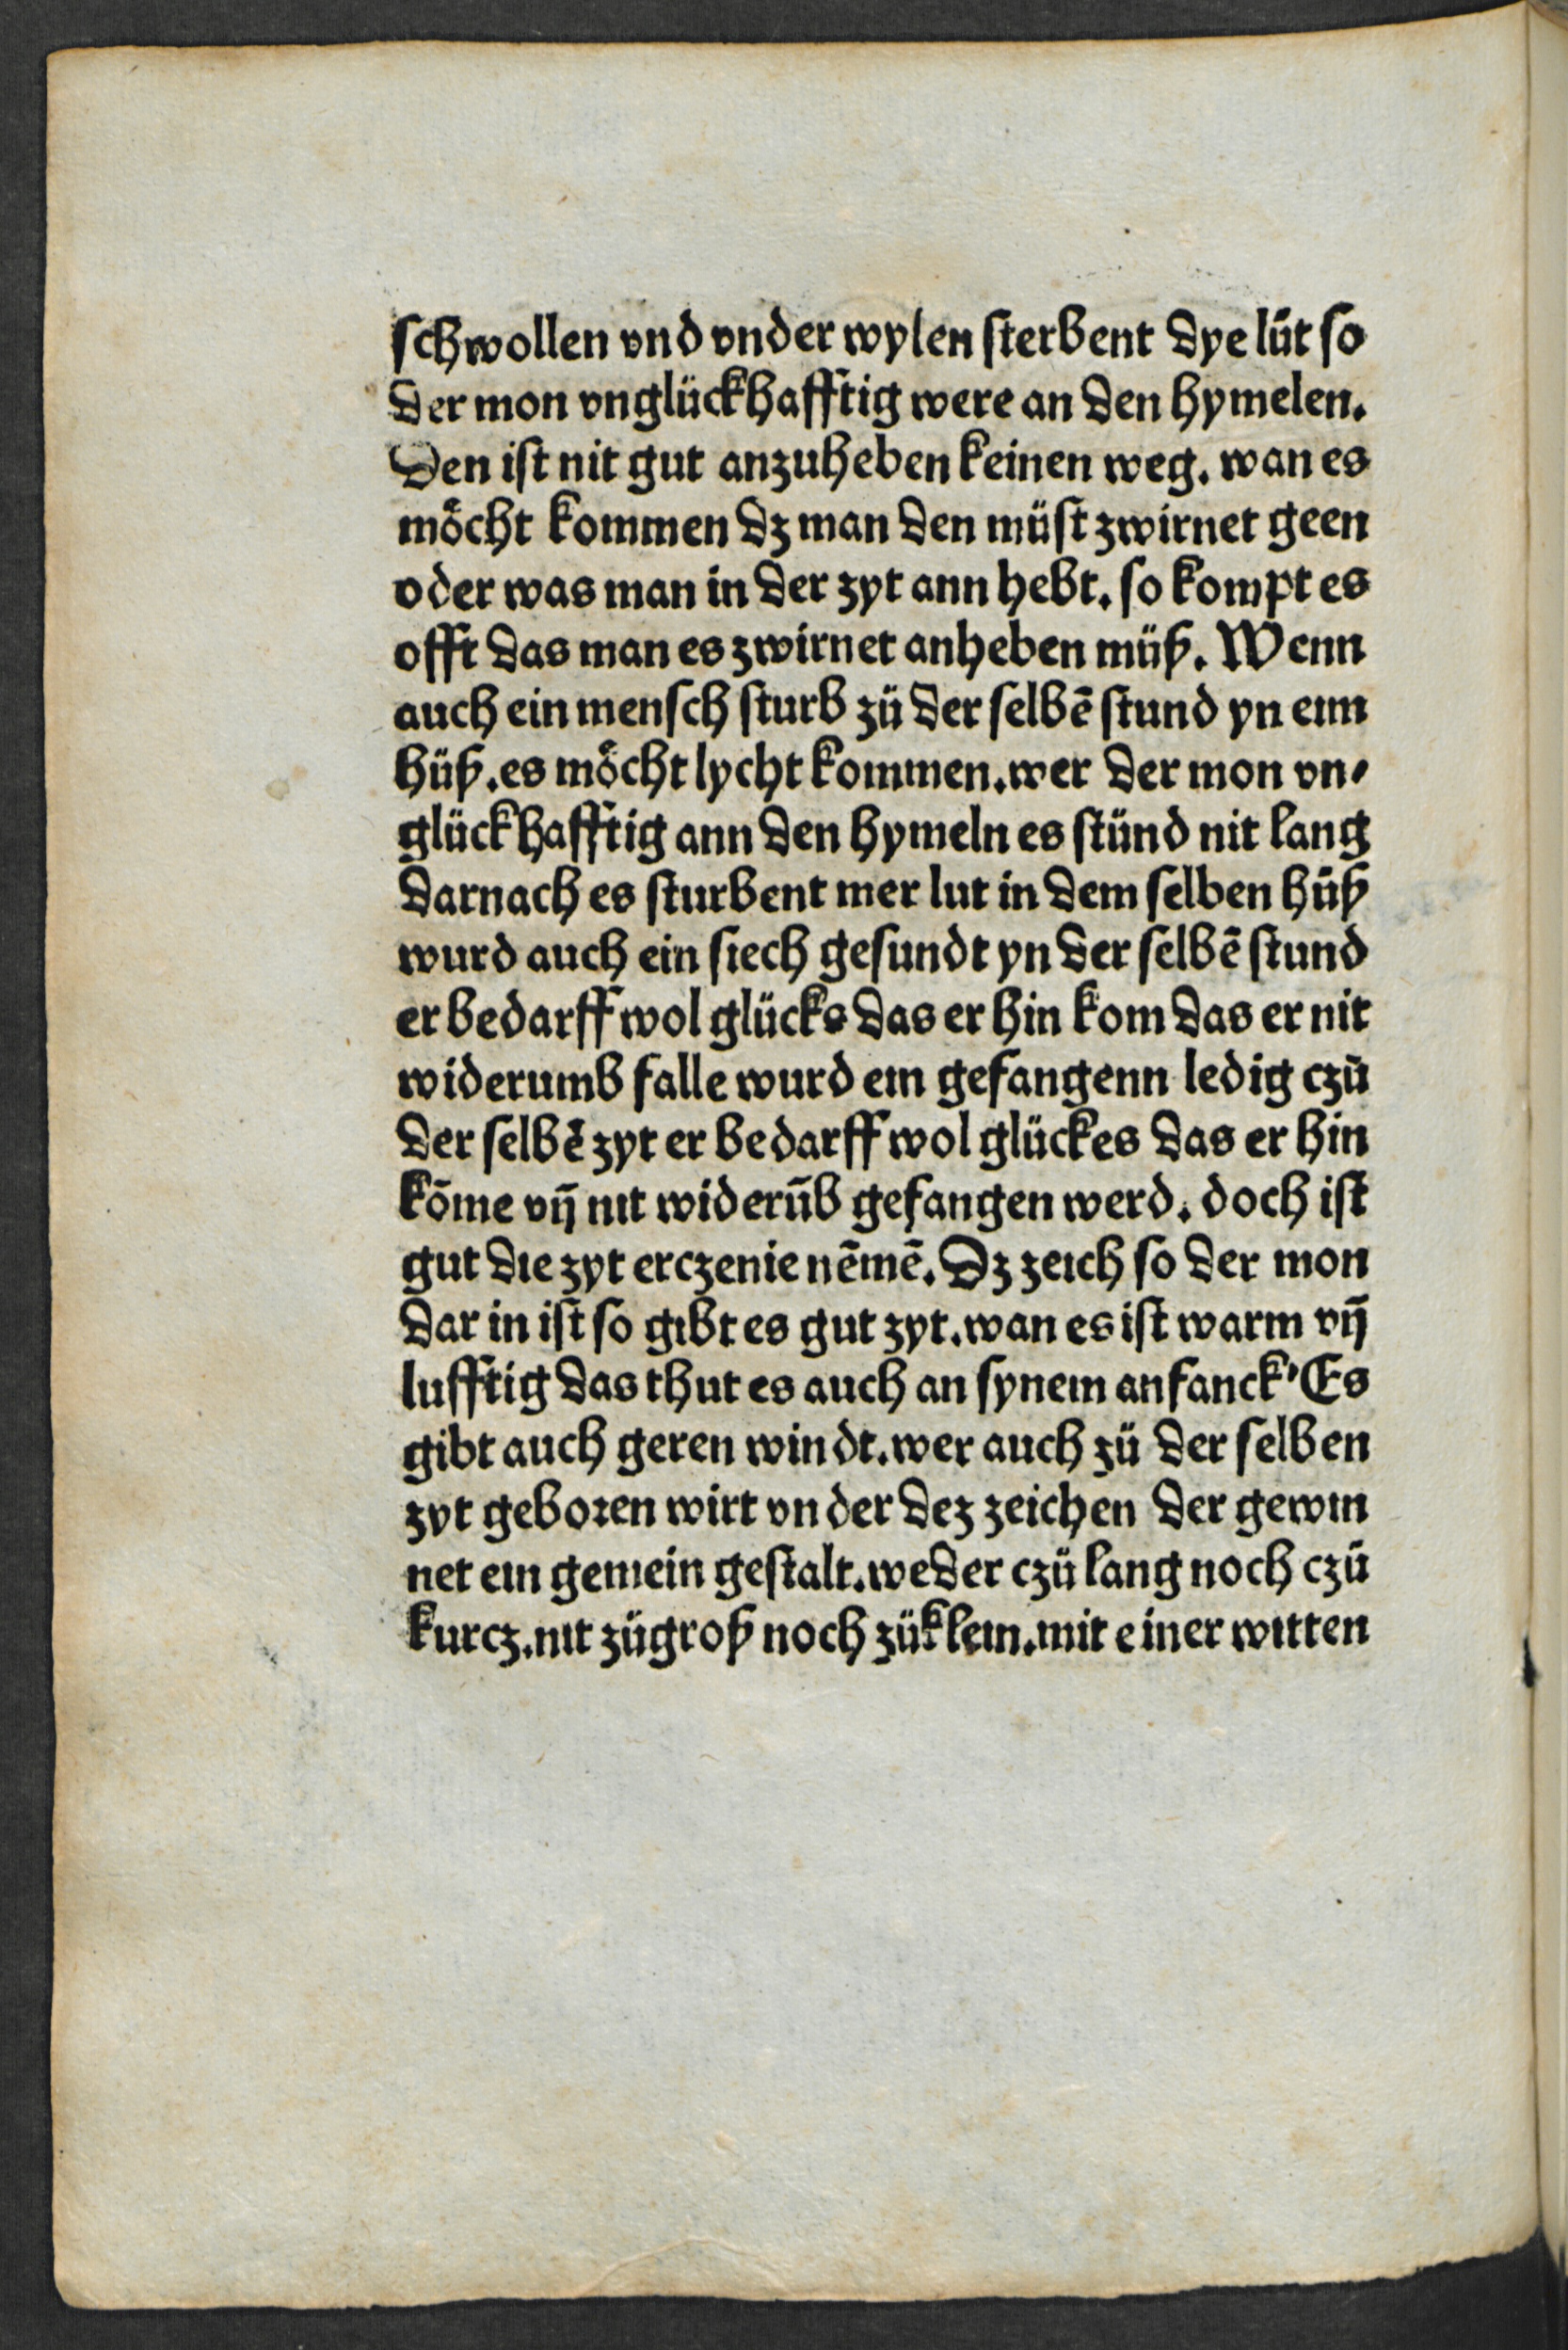 schwollen vnd vnder wylen sterbent dye lüt so
der mon vnglückhafftig were an den hymelen.
Den ist nit gut anzuheben keinen weg. wan es
möcht kommen dz man den müst zwirnet geen
oder was man in der zyt ann hebt. so kompt es
offt das man es zwirnet anheben müß. Wenn
auch ein mensch sturb zü der selbē stund yn eim
hüß. es möcht lycht kommen. wer der mon vn⸗
glückhafftig ann den hymeln es stünd nit lang
darnach es sturbent mer lut in dem selben hüß
wurd auch ein siech gesundt yn der selbē stund
er bedarff wol glücks das er hin kom das er nit
widerumb falle wurd ein gefangenn ledig czü
der selbē zyt er bedarff wol glückes das er hin
kōme vñ nit widerūb gefangen werd. doch ist
gut die zyt erczenie nēmē. Dz zeich so der mon
dar in ist so gibt es gut zyt. wan es ist warm vñ
lufftig das thut es auch an synem anfanck' Es
gibt auch geren windt. wer auch zü der selben
zyt geboren wirt vnder dez zeichen der gewin
net ein gemein gestalt. weder czü lang noch czü
kurcz. nit zügroß noch züklein. mit einer witten